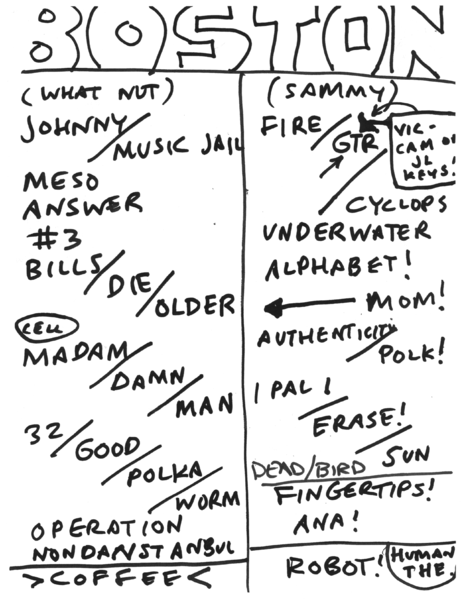 BOSTON
(WHAT NUT)
JOHNNY/
MUSIC JAIL
MESO
ANSWER
#3
BILLS/
DIE/
OLDER
CELL
MADAM/
DAMN/
MAN
32/
GOOD/
POLKA/
WORM
OPERATION
NONDANSTANBUL
>COFFEE<
(SAMMY)
FIRE/
GTR/
VIC-
CAM OR
JL
KEYS!
CYCLOPS
UNDERWATER
ALPHABET!
MOM!
AUTHENTICITY/
POLK!
1 PAL 1/
ERASE!/
SUN
DEAD/BIRD
FINGERTIPS!
ANA!
ROBOT!
HUMAN
THE.